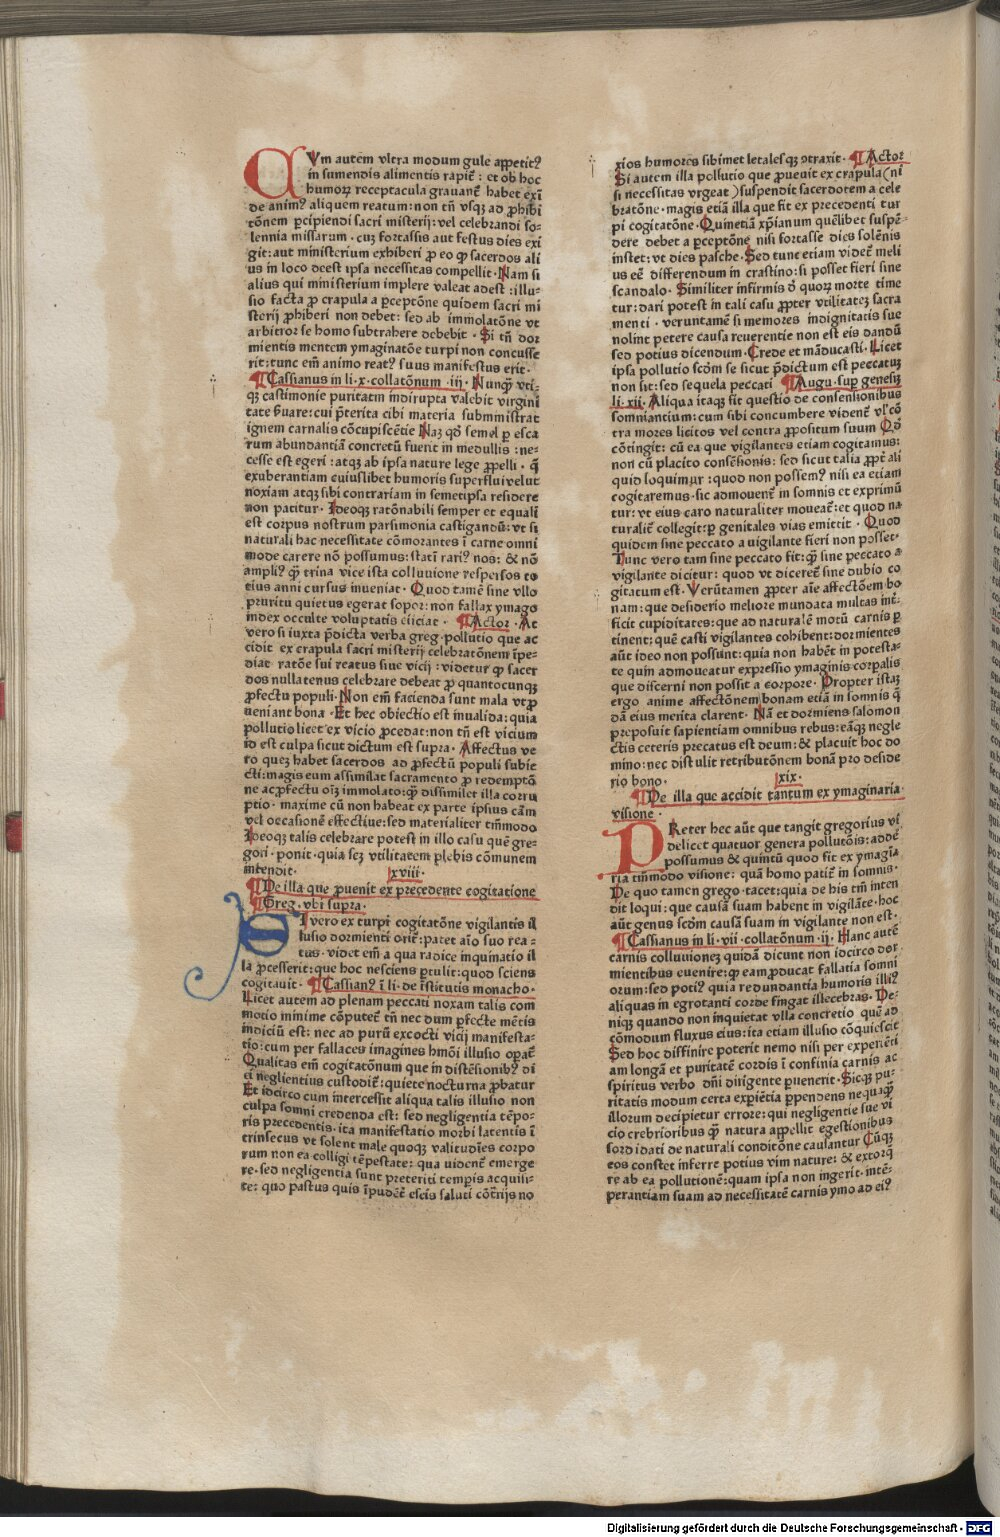 CVm autem vltra modum gule appetitꝰ
in sumendis alimentis rapit᷑ : et ob hoc
humoꝝ receptacula grauant᷑ habet exī
de animꝰ aliquem reatum: non tñ vsqꝫ ad ꝓhibi
tōnem ꝑcipiendi sacri misterij: vel celebrandi so⸗
lennia missarum · cuꝫ fortassis aut festus dies exi
git: aut ministerium exhiberi ꝓ eo ꝙ sacerdos ali
us in loco deest ipsa necessitas compellit · Nam si
alius qui ministerium implere valeat adest : illu⸗
sio facta ꝓ crapula a ꝑceptōne quidem sacri mi
sterij ꝓhiberi non debet: sed ab immolatōne vt
arbitror se homo subtrahere debebit · Si tñ dor
mientis mentem ymaginatōe turpi non concusse
rit: tunc em̄ animo reatꝰ suus manifestus erit ·
¶ Cassianus in li · x · collatōnum · iij · Nunqꝫ vti⸗
qꝫ castimonie puritatm indirupta valebit virgini
tate ẜuare: cui p̄terita cibi materia subministrat
ignem carnalis cōcupiscētie Naꝫ qd̄ semel ꝑ esca
rum abundantiā concretū fuerit in medullis : ne⸗
cesse est egeri : atqꝫ ab ipsa nature lege ꝓpelli · q̄
exuberantiam cuiuslibet humoris superflui velut
noxiam atqꝫ sibi contrariam in semetipsa residere
non patitur · Ideoqꝫ ratōnabili semper et equali
est corpus nostrum parsimonia castigandū: vt si
naturali hac necessitate cōmorantes ī carne omni
mode carere nō possumus: statī rariꝰ nos: & nō
ampliꝰ qꝫ trina vice ista colluuione respersos to
tius anni cursus inueniat · Quod tamē sine vllo
pruritu quietus egerat sopor: non fallax ymago
index occulte voluptatis eiiciat · ¶ Actor · At
vero si iuxta p̄dicta verba greg · pollutio que ac
cidit ex crapula sacri misterij celebratōnem īpe⸗
diat ratōe sui reatus siue vicij : videtur ꝙ sacer
dos nullatenus celebrare debeat ꝓ quantocunqꝫ
ꝓfectu populi · Non em̄ facienda sunt mala vt ꝓ
ueniant bona · Et hec obiectio est inualida: quia
pollutio licet ex vicio ꝓcedat: non tñ est vicium
id est culpa sicut dictum est supra · Affectus ve
ro queꝫ habet sacerdos ad ꝓfectū populi subie
cti: magis eum assimilat sacramento ꝓ redemptō
ne ac ꝓfectu oīꝫ immolato: qꝫ dissimilet illa corru
ptio · maxime cū non habeat ex parte ipsius cām
vel occasionē effectiue: sed materialiter tm̄modo
Ideoqꝫ talis celebrare potest in illo casu quē gre⸗
gori · ponit · quia scꝫ vtilitatem plebis cōmunem
intendit · xviii ·
¶ De illa que ꝓuenit ex precedente cogitatione
¶ Greg · vbi supra ·
SI vero ex turpi cogitatōne vigilantis il
lusio dormienti orit᷑: patet aīo suo rea⸗
tus · videt em̄ a qua radice inquinatio il
la ꝓcesserit: que hoc nesciens ꝑtulit: quod sciens
cogitauit · ¶ Cassianꝰ ī li · de ī̄stitutis monacho ·
Licet autem ad plenam peccati noxam talis com
motio minime cōputet᷑ tñ nec dum ꝑfecte mētis
indiciū est: nec ad purū excocti vicij manifesta⸗
tio: cum per fallaces imagines hm̄oi illusio opat᷑
Qualitas em̄ cogitatōnum que in distēsionibꝰ di
ei neglientius custodit᷑: quiete nocturna ꝓbatur
Et idcirco cum intercessit aliqua talis illusio non
culpa somni credenda est: sed negligentia tēpo⸗
ris precedentis · ita manifestatio morbi latentis ī
trinsecus vt solent male quoqꝫ valitudīes corpo
rum non ea colligi tēpestate: qua vident᷑ emerge
re · sed negligentia sunt preteriti tempis acquisi⸗
te: quo pastus quis īpudēt᷑ escis saluti cōtrijs no
xios humores sibimet letalesqꝫ ↄtraxit · ¶ Actor
Si autem illa pollutio que ꝓuenit ex crapula (ni
si necessitas vrgeat ) suspendit sacerdotem a cele
bratōne · magis etiā illa que fit ex precedenti tur
pi cogitatōne · Quinetiā xp̄ianum quēlibet suspē⸗
dere debet a ꝑceptōne nisi fortasse dies solēnis
instet: vt dies pasche · Sed tunc etiam videt᷑ meli
us eē differendum in crastino: si posset fieri sine
scandalo · Similiter infirmis ď quoꝝ morte time
tur: dari potest in tali casu ꝓpter vtilitateꝫ sacra
menti · veruntamē si memores indignitatis sue
nolint petere causa reuerentie non est eis dandū
sed potius dicendum · Crede et māducasti · Licet
ipsa pollutio scd̄m se sicut p̄dictum est peccatuꝫ
non sit: sed sequela peccati ¶ Augu · sup̄ genesiꝫ
li · xii · Aliqua itaqꝫ fit questio de consensionibus
somniantium: cum sibi concumbere vident᷑ vl' cō
tra mores licitos vel contra ꝓpositum suum Qd̄
cōtingit: cū ea que vigilantes etiam cogitamus:
non cū placito consēsionis: sed sicut talia ꝓpt᷑ ali
quid loquimur : quod non possemꝰ nisi ea etiam
cogitaremus · sic admouent᷑ in somnis et exprimū
tur: vt eius caro naturaliter moueat᷑: et quod na
turalit᷑ collegit: ꝑ genitales vias emittit · Quod
quidem sine peccato a vigilante fieri non posset ·
Tunc vero tam sine peccato fit: qꝫ sine peccato a
vigilante dicitur: quod vt diceret᷑ sine dubio co
gitatum est · Verūtamen ꝓpter aīe affectōem bo
nam: que desiderio meliore mundata multas int᷑⸗
ficit cupiditates: que ad naturalē motū carnis ꝑ
tinent: quē casti vigilantes cohibent: dormientes
aūt ideo non possunt: quia non habēt in potesta⸗
te quin admoueatur expressio ymaginis corpalis
que discerni non possit a corpore · Propter istaꝫ
ergo anime affectōnem bonam etiā in somnis q̄
dā eius merita clarent · Nā et dormiens salomon
preposuit sapientiam omnibus rebus: eāqꝫ negle
ctis ceteris precatus est deum: & placuit hoc do
mino: nec distulit retributōnem bonā pro deside
rio bono · xix ·
¶ De illa que accidit tantum ex ymaginaria
visione ·
PReter hec aūt que tangit gregorius vī
delicet quatuor genera pollutōis: addē
possumus & quintū quod fit ex ymagīa
ria tm̄modo visione: quā homo patit᷑ in somnis ·
De quo tamen grego · tacet: quia de his tm̄ inten
dit loqui: que causā suam habent in vigilāte · hoc
aūt genus scd̄m causā suam in vigilante non est ·
¶ Cassianus in li · vii · collatōnum · ij · Hanc autē
carnis colluuioneꝫ quidā dicunt non idcirco dor
mientibus euenire: ꝙ eam ꝓducat fallatia somni
orum: sed potiꝰ quia redundantia humoris illiꝰ
aliquas in egrotanti corde fingat illecebras · De⸗
niqꝫ quando non inquietat vlla concretio quē ad
cōmodum fluxus eius: ita etiam illusio cōquiescit
Sed hoc diffinire poterit nemo nisi per experiēti
am longā et puritatē cordis ī confinia carnis ac
spiritus verbo dn̄i dirigente ꝑuenerit · Sicqꝫ pu⸗
ritatis modum certa expiētia ꝑpendens nequaqꝫ
illorum decipietur errore: qui negligentie sue vi
cio crebrioribus qꝫ natura appellit egestionibus
sordidati de naturali conditōne causantur Cūqꝫ
eos constet inferre potius vim nature: & extorq̄
re ab ea pollutionē: quam ipsa non ingerit · intē⸗
perantiam suam ad necessitatē carnis ymo ad eiꝰ
Digitalisierung gefördert durch die Deutsche Forschungsgemeinschaft - DFG